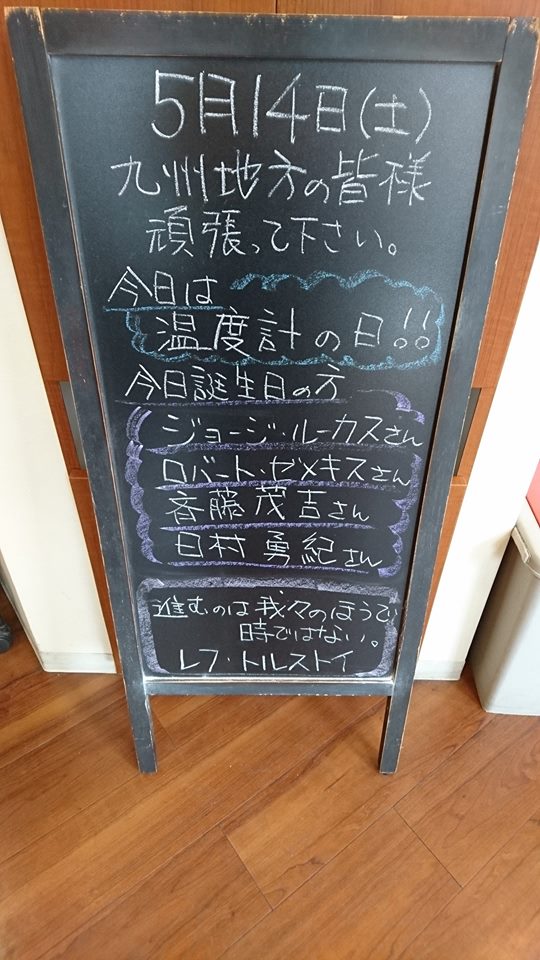 5月14日(土)
九州地方の皆様
頑張って下さい。
今日は
温度計の日!!
今日誕生日の方
ジョージ・ルーカスさん
ロバート・ゼメキスさん
斉藤茂吉さん
日村勇紀さん
進むのは我々のほうで
時ではない。
レフ・トルストイ